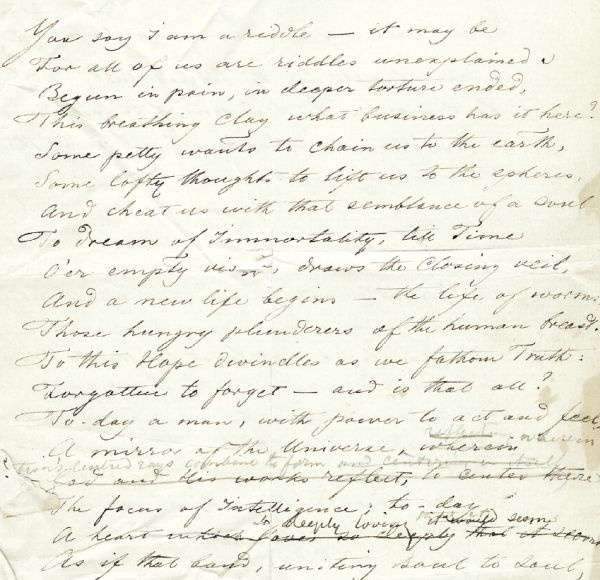 You say I am a riddle – it may be
For all of us are riddles unexplained.
Begun in pain, in deeper torture ended,
This breathing clay what business has it here?
Some petty wants to chain us to the earth,
Some lofty thoughts to lift us to the spheres,
And cheat us with that semblance of a soul
To dream of Immortality, till Time
O'er empty visions draws the closing veil,
And a new life begins – the life of worms,
Those hungry plunderers of the human breast.
To this Hope dwindles as we fathom Truth:
Forgotten to forget – and is that all?
To-day a man, with power to act and feel,
A mirror of the Universe, wherein wherein
centred rays combine to form and
God and His works reflect, to center there
The focus of Intelligence; to-day
deeply loving it would seem
A heart which loves so deeply that it seems
As if that band, uniting soul to soul,